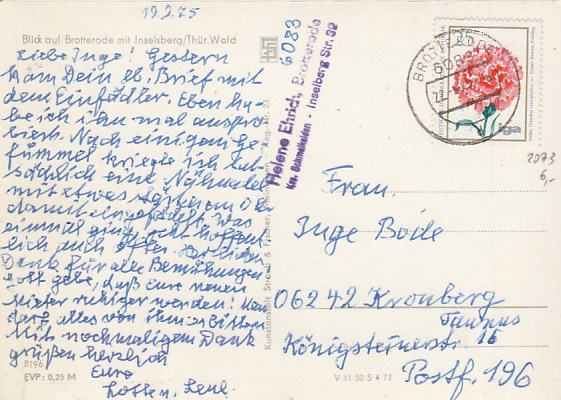 19.2.75
Blick auf Brotterode mit Inselsberg/Thür. Wald
Liebe Inge! Gestern
kam Dein lb. Brief mit
dem Einfädler. Eben ha-
be ich ihn mal auspro-
biert. Nach einigem Ge-
fummel kriegte ich tat-
sächlich eine Nähnadel
mit etwas
damit eingefädelt. Was
einmal ging, geht hoffent-
lich auch öfter. Herzlichen
Dank für alle Bemühungen
Gott gebe, daß eure neuen
Mieter ruhiger werden! Man
darf alles von ihm erbitten.
Mit nochmaligem Dank
grüßen herzlich
Eure
Lotte u.
8196
EVP: 0,25 M
Kunstanstalt Straub & Fischer, Reg.-Nr. 23
6083
Helene Ehrich, Brotterode
Krs. Schmalkalden - Inselberg Str. 32
BROTTERODE
6083
iga
25
2073
6,-
Frau
Inge Bode
06242 Kronberg
Taunus
Königsteinerstr 16
Postf. 196
V 11 50 S 4 73